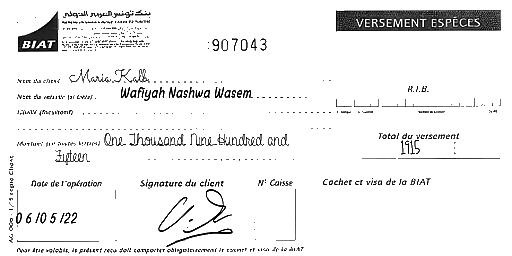 بنك تونس العربي الدولي
BIAT
VERSEMENT ESPÈCES
907043
Nom du client Maria Kalb
Nom du versant (si tiers) Wafiyah Nashwa Wasem
R.I.B.
Libellé (facultatif)
Montant (en toutes lettres) One Thousand Nine Hundred and
Fifteen
Total du versement
1915
Date de l'opération Signature du client N° Caisse Cachet et visa de la BIAT
06/05/22
Pour être valable, le présent reçu doit comporter obligatoirement le cachet et visa de la BIAT